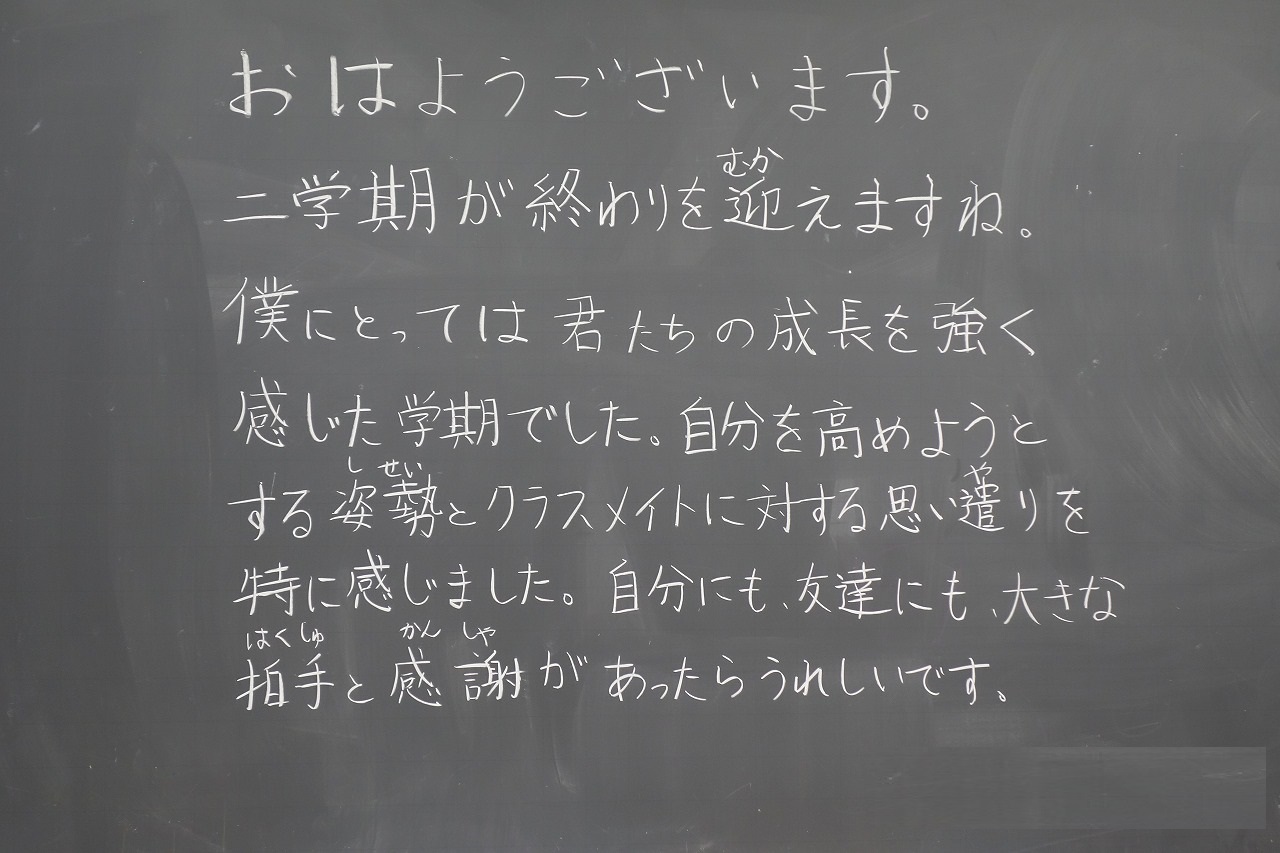 おはようございます。
むか
二学期が終わりを迎えますね。
僕にとっては君たちの成長を強く
感じた学期でした。自分を高めようと
しせい や
する姿勢とクラスメイトに対する思い遣りを
特に感じました。自分にも、友達にも、大きな
はくしゅ かんしゃ
拍手と感謝があったらうれしいです。